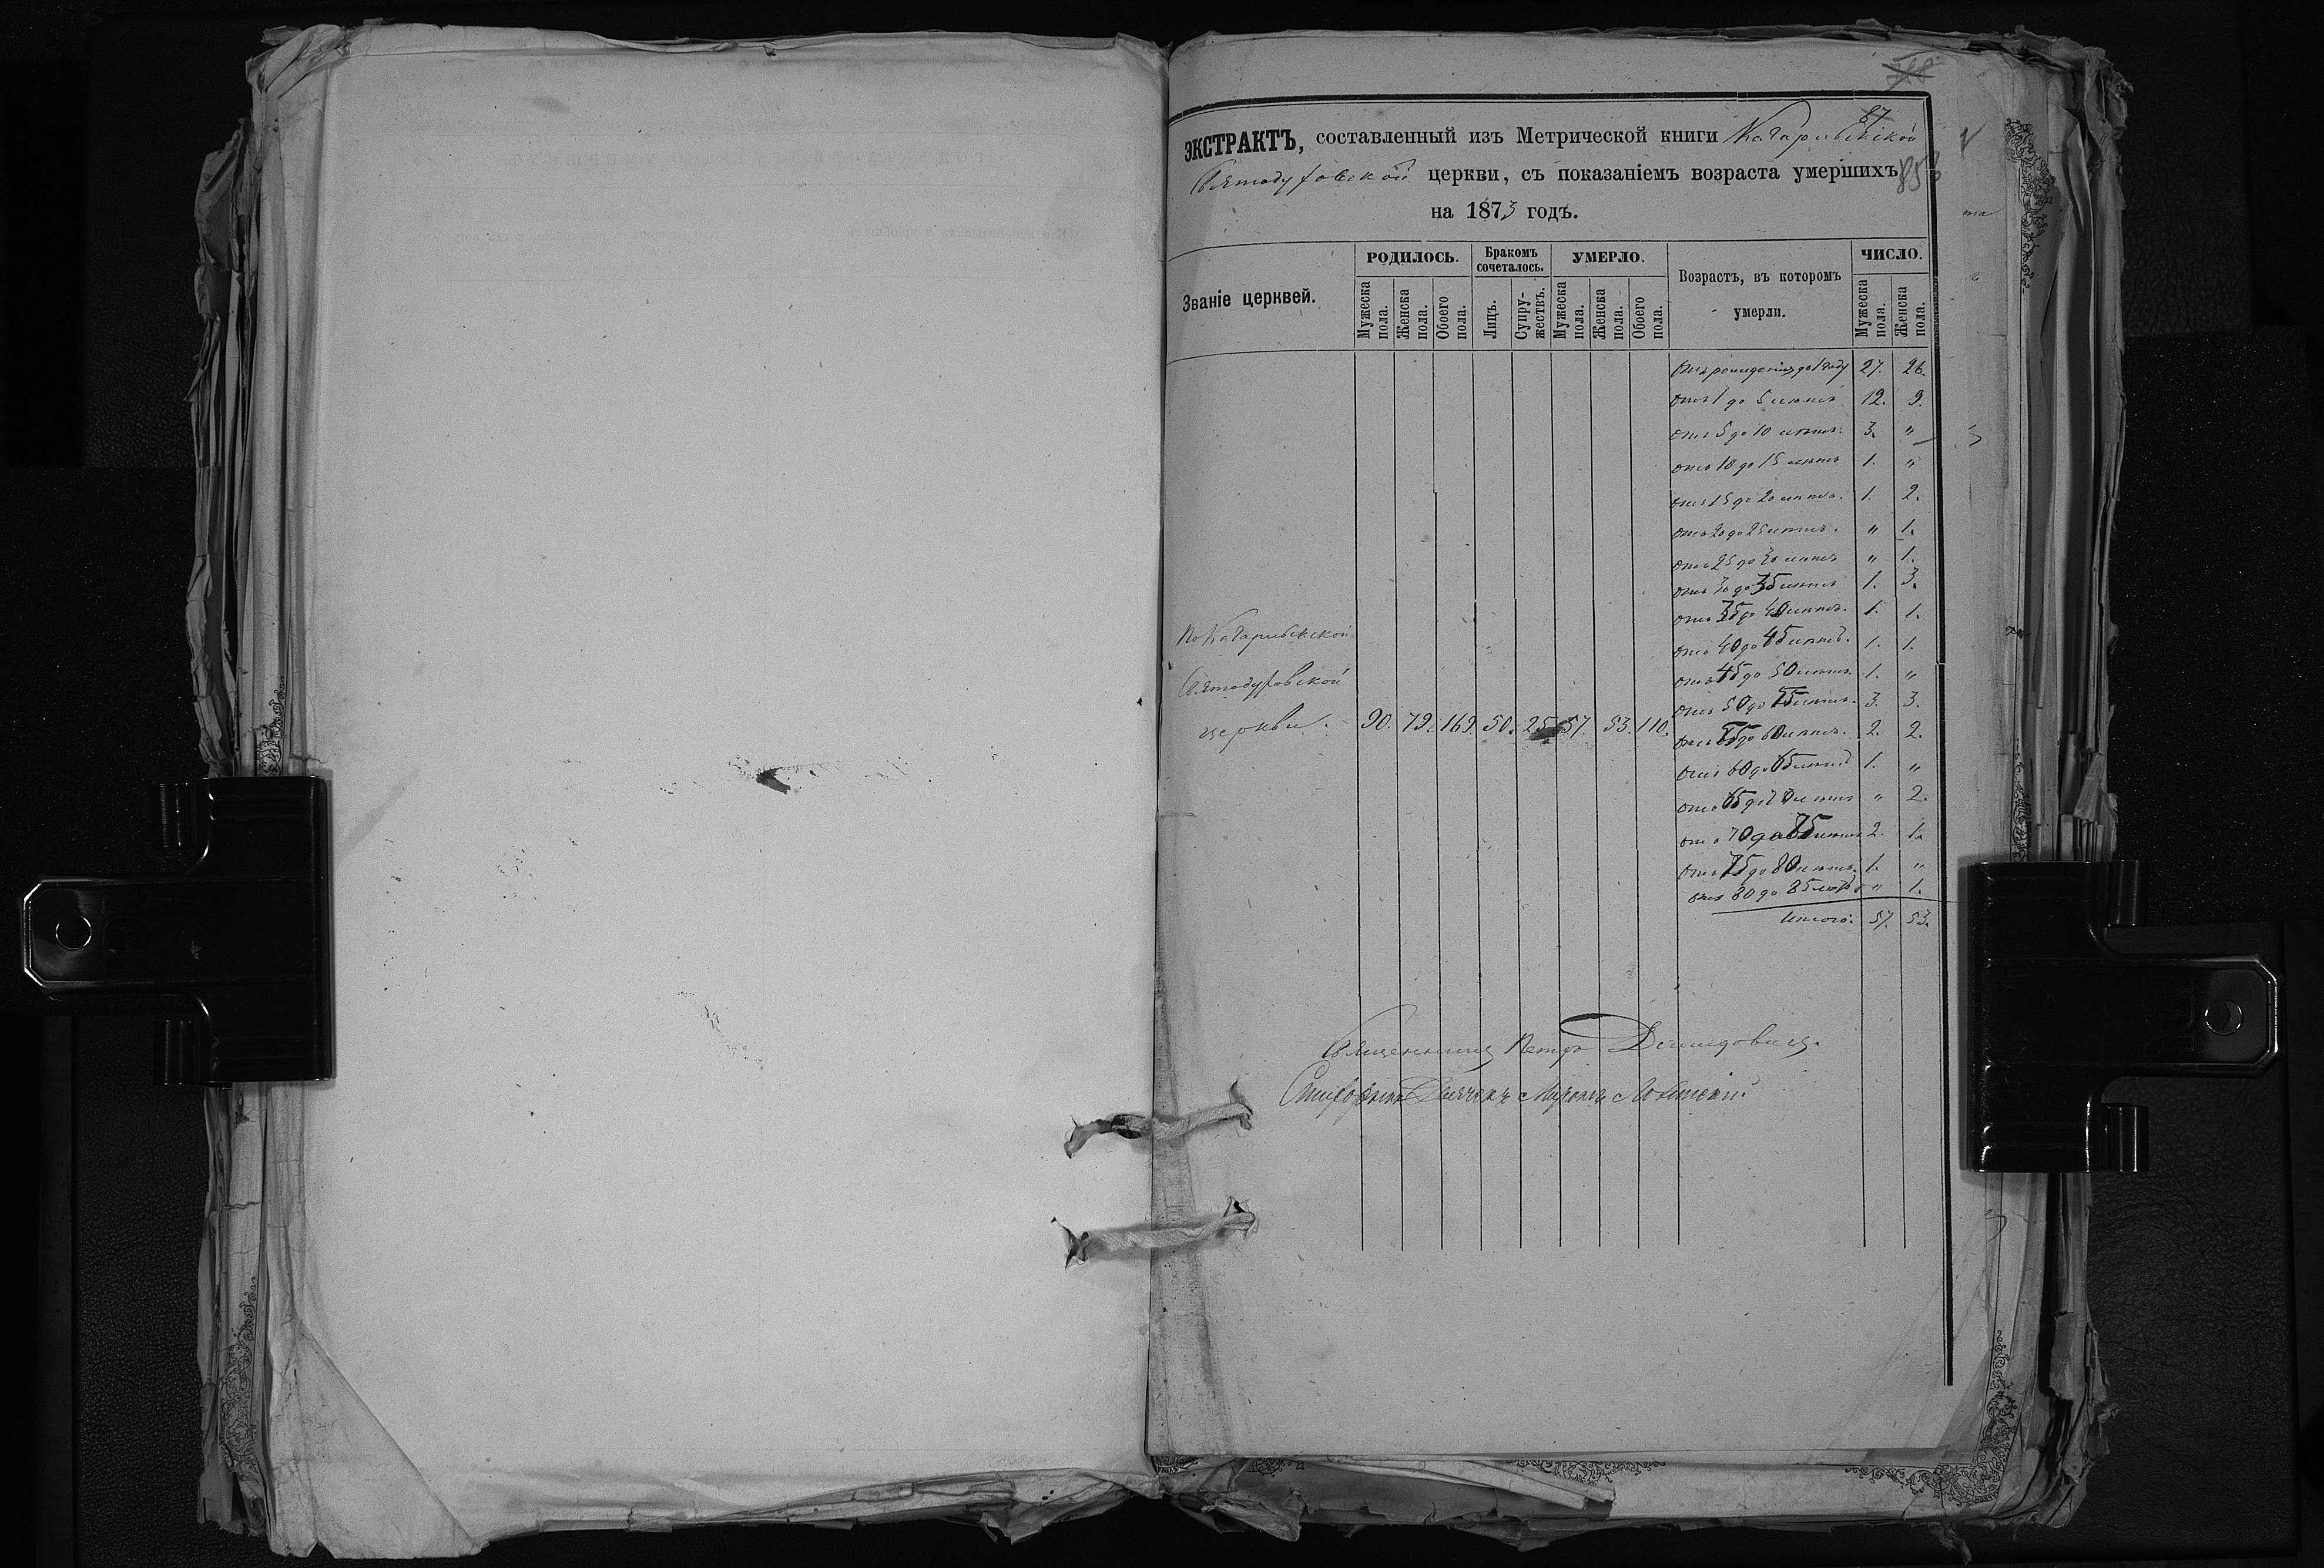 87
ЭКСТРАКТЪ, составленный изъ Метрической книги
Святодуховской церкви, съ показаніемъ возраста умершихъ 85
на 1873 годъ.
Званіе церквей.
РОДИЛОСЬ.
Бракомъ сочеталось.
УМЕРЛО.
Возрастъ, въ которомъ умерли.
ЧИСЛО.
Мужеска пола.
Женска пола.
Обоего пола.
Лицъ.
Супружествъ.
Мужеска пола.
Женска пола.
Обоего пола.
Мужеска пола.
Женска пола.
Отъ рожденія до 1 году 27. 26.
отъ 1 до 5 лѣтъ 12. 9.
отъ 5 до 10 лѣтъ. 3. "
отъ 10 до 15 лѣтъ 1. "
отъ 15 до 20 лѣтъ. 1. 2.
отъ 20 до 25 лѣтъ. " 1.
отъ 25 до 30 лѣтъ " 1.
отъ 30 до 35 лѣтъ 1. 3.
отъ 35 до 40 лѣтъ. 1. 1.
отъ 40 до 45 лѣтъ. 1. 1.
отъ 45 до 50 лѣтъ. 1. "
отъ 50 до 55 лѣтъ. 3. 3.
отъ 55 до 60 лѣтъ. 2. 2.
отъ 60 до 65 лѣтъ 1. "
отъ 65 до 70 лѣтъ " 2.
отъ 70 до 75 лѣтъ 2. 1.
отъ 75 до 80 лѣтъ. 1. "
отъ 80 до 85 лѣтъ " 1.
Итого. 57. 53.
По
Святодуховской
церкви. 90. 79. 169 50. 25 57. 53. 110.
Священникъ Петръ
Дьячекъ